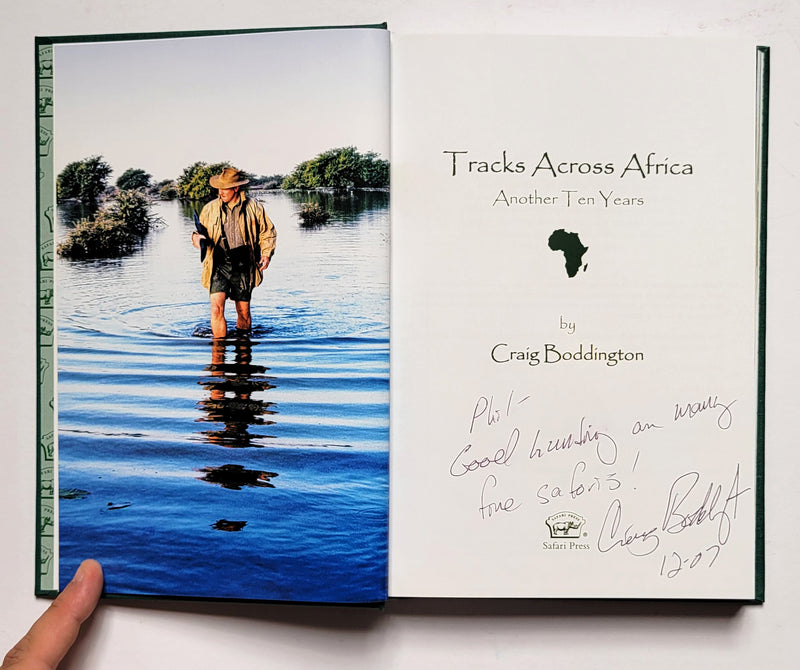 Tracks Across Africa
Another Ten Years
by
Craig Boddington
Phil-
Good hunting on many
fine safaris!
SAFARI PRESS
®
Safari Press
Craig Boddington
12-07